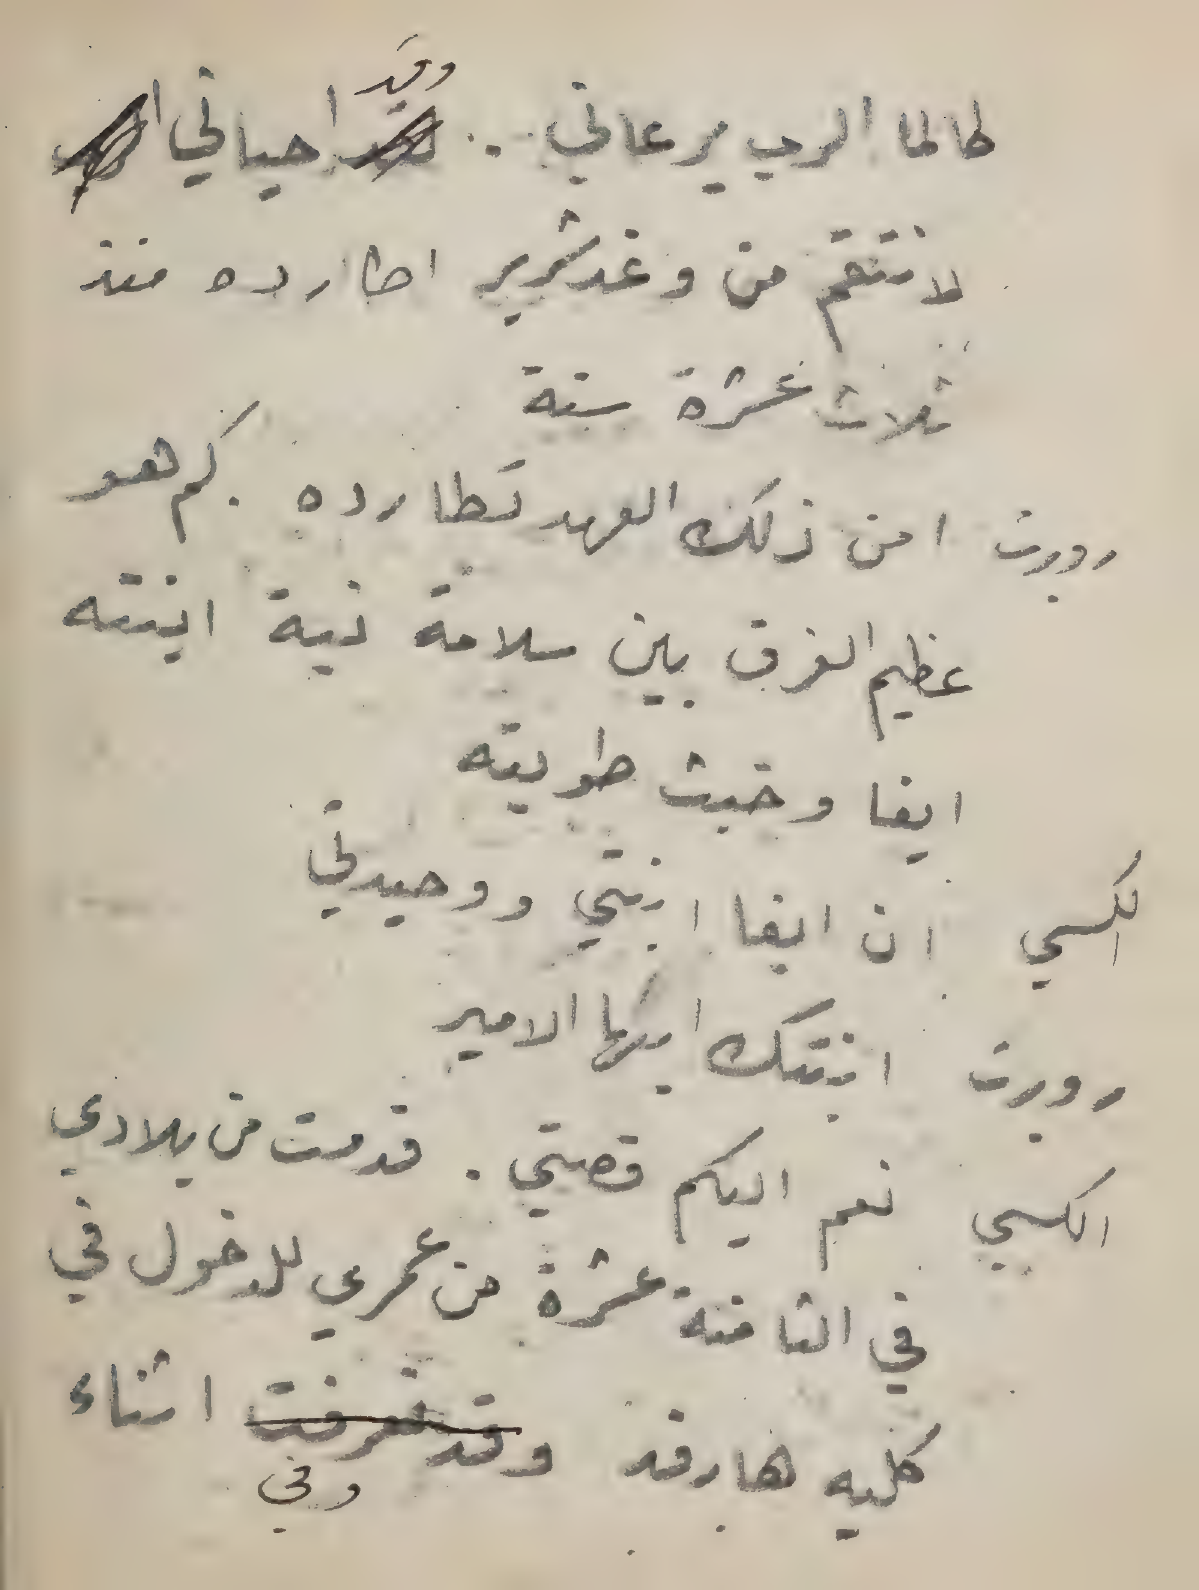 وقد
طالما الرب يرعاني .. احياني
لانتقم من وغد شرير اطارده منذ
ثلاث عشرة سنة
روبرت امن ذلك العهد تطارده . كم هو
عظيم الفرق بين سلامة نية ابنته
ايفا وخبث طويته
الكسي ان ايفا ابنتي ووحيدتي
روبرت ابنتك ايها الامير
الكسي نعم اليكم قصتي . قدمت من بلادي
في الثامنة عشرة من عمري للدخول في
كليه هارفد وقد تعرفت اثناء
وفي